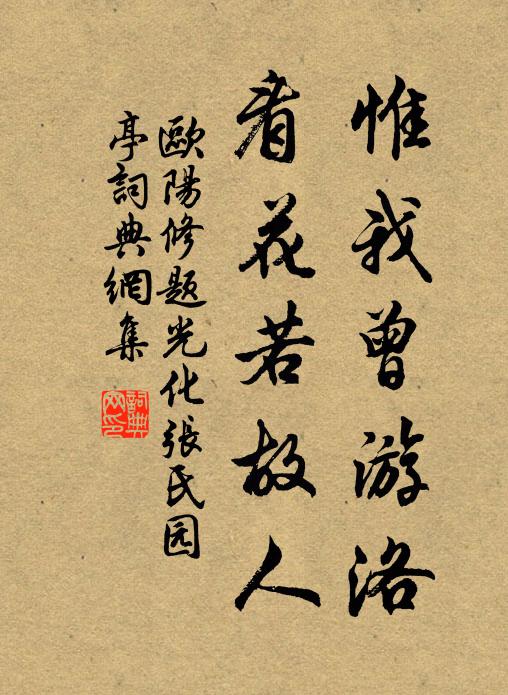 惟我曾游洛
看花若故人
歐陽修题光化張氏园
亭詞典網集
詞典網印